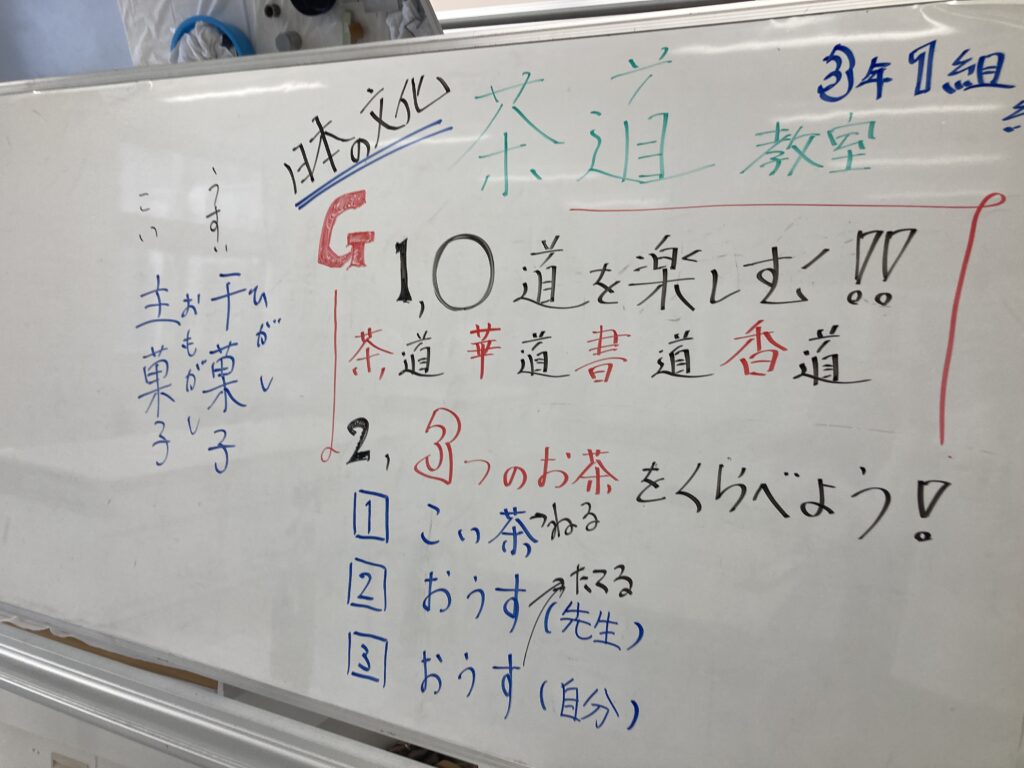 日本の文化
茶道 教室
3年1組
G
1,〇道を楽しむ!!
茶道 華道 書道 香道
2, 3つのお茶をくらべよう!
1 こい茶 ねる
2 おうす たてる (先生)
3 おうす (自分)
うすい
ひがし
干菓子
こい
おもがし
主菓子